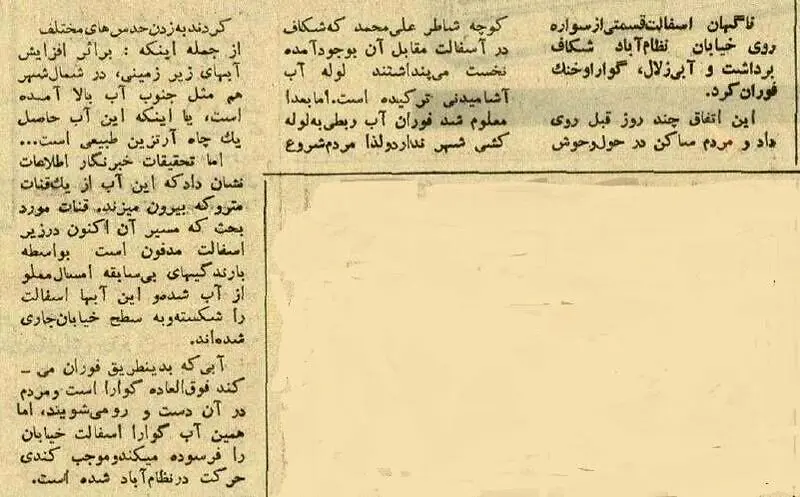 ناگهان اسفالت قسمتی از سواره
روی خیابان نظام‌آباد شکاف
برداشت و آبی زلال، گوارا و خنك
فوران کرد.
این اتفاق چند روز قبل روی
داد و مردم ساکن در حول و حوش
کوچه شاطر علی‌محمد که شکاف
در آسفالت مقابل آن بوجود آمده
نخست می‌پنداشتند لوله آب
آشامیدنی ترکیده است. اما بعدا
معلوم شد فوران آب ربطی به لوله
کشی شهر ندارد و لذا مردم شروع
کردند به زدن حدس های مختلف
از جمله اینکه : براثر افزایش
آبهای زیر زمینی، در شمال شهر
هم مثل جنوب آب بالا آمده
است، یا اینکه این آب حاصل
یك چاه آرتزین طبیعی است...
اما تحقیقات خبرنگار اطلاعات
نشان داد که این آب از یك قنات
متروکه بیرون میزند. قنات مورد
بحث که مسیر آن اکنون در زیر
اسفالت مدفون است بواسطه
بارندگیهای بی‌سابقه امسال مملو
از آب شده و این آبها اسفالت
را شکسته و به سطح خیابان جاری
شده‌اند.
آبی که بدینطریق فوران می ـ
کند فوق‌العاده گوارا است و مردم
در آن دست و رو می‌شویند، اما
همین آب گوارا اسفالت خیابان
را فرسوده میکند و موجب کندی
حرکت در نظام‌آباد شده است.